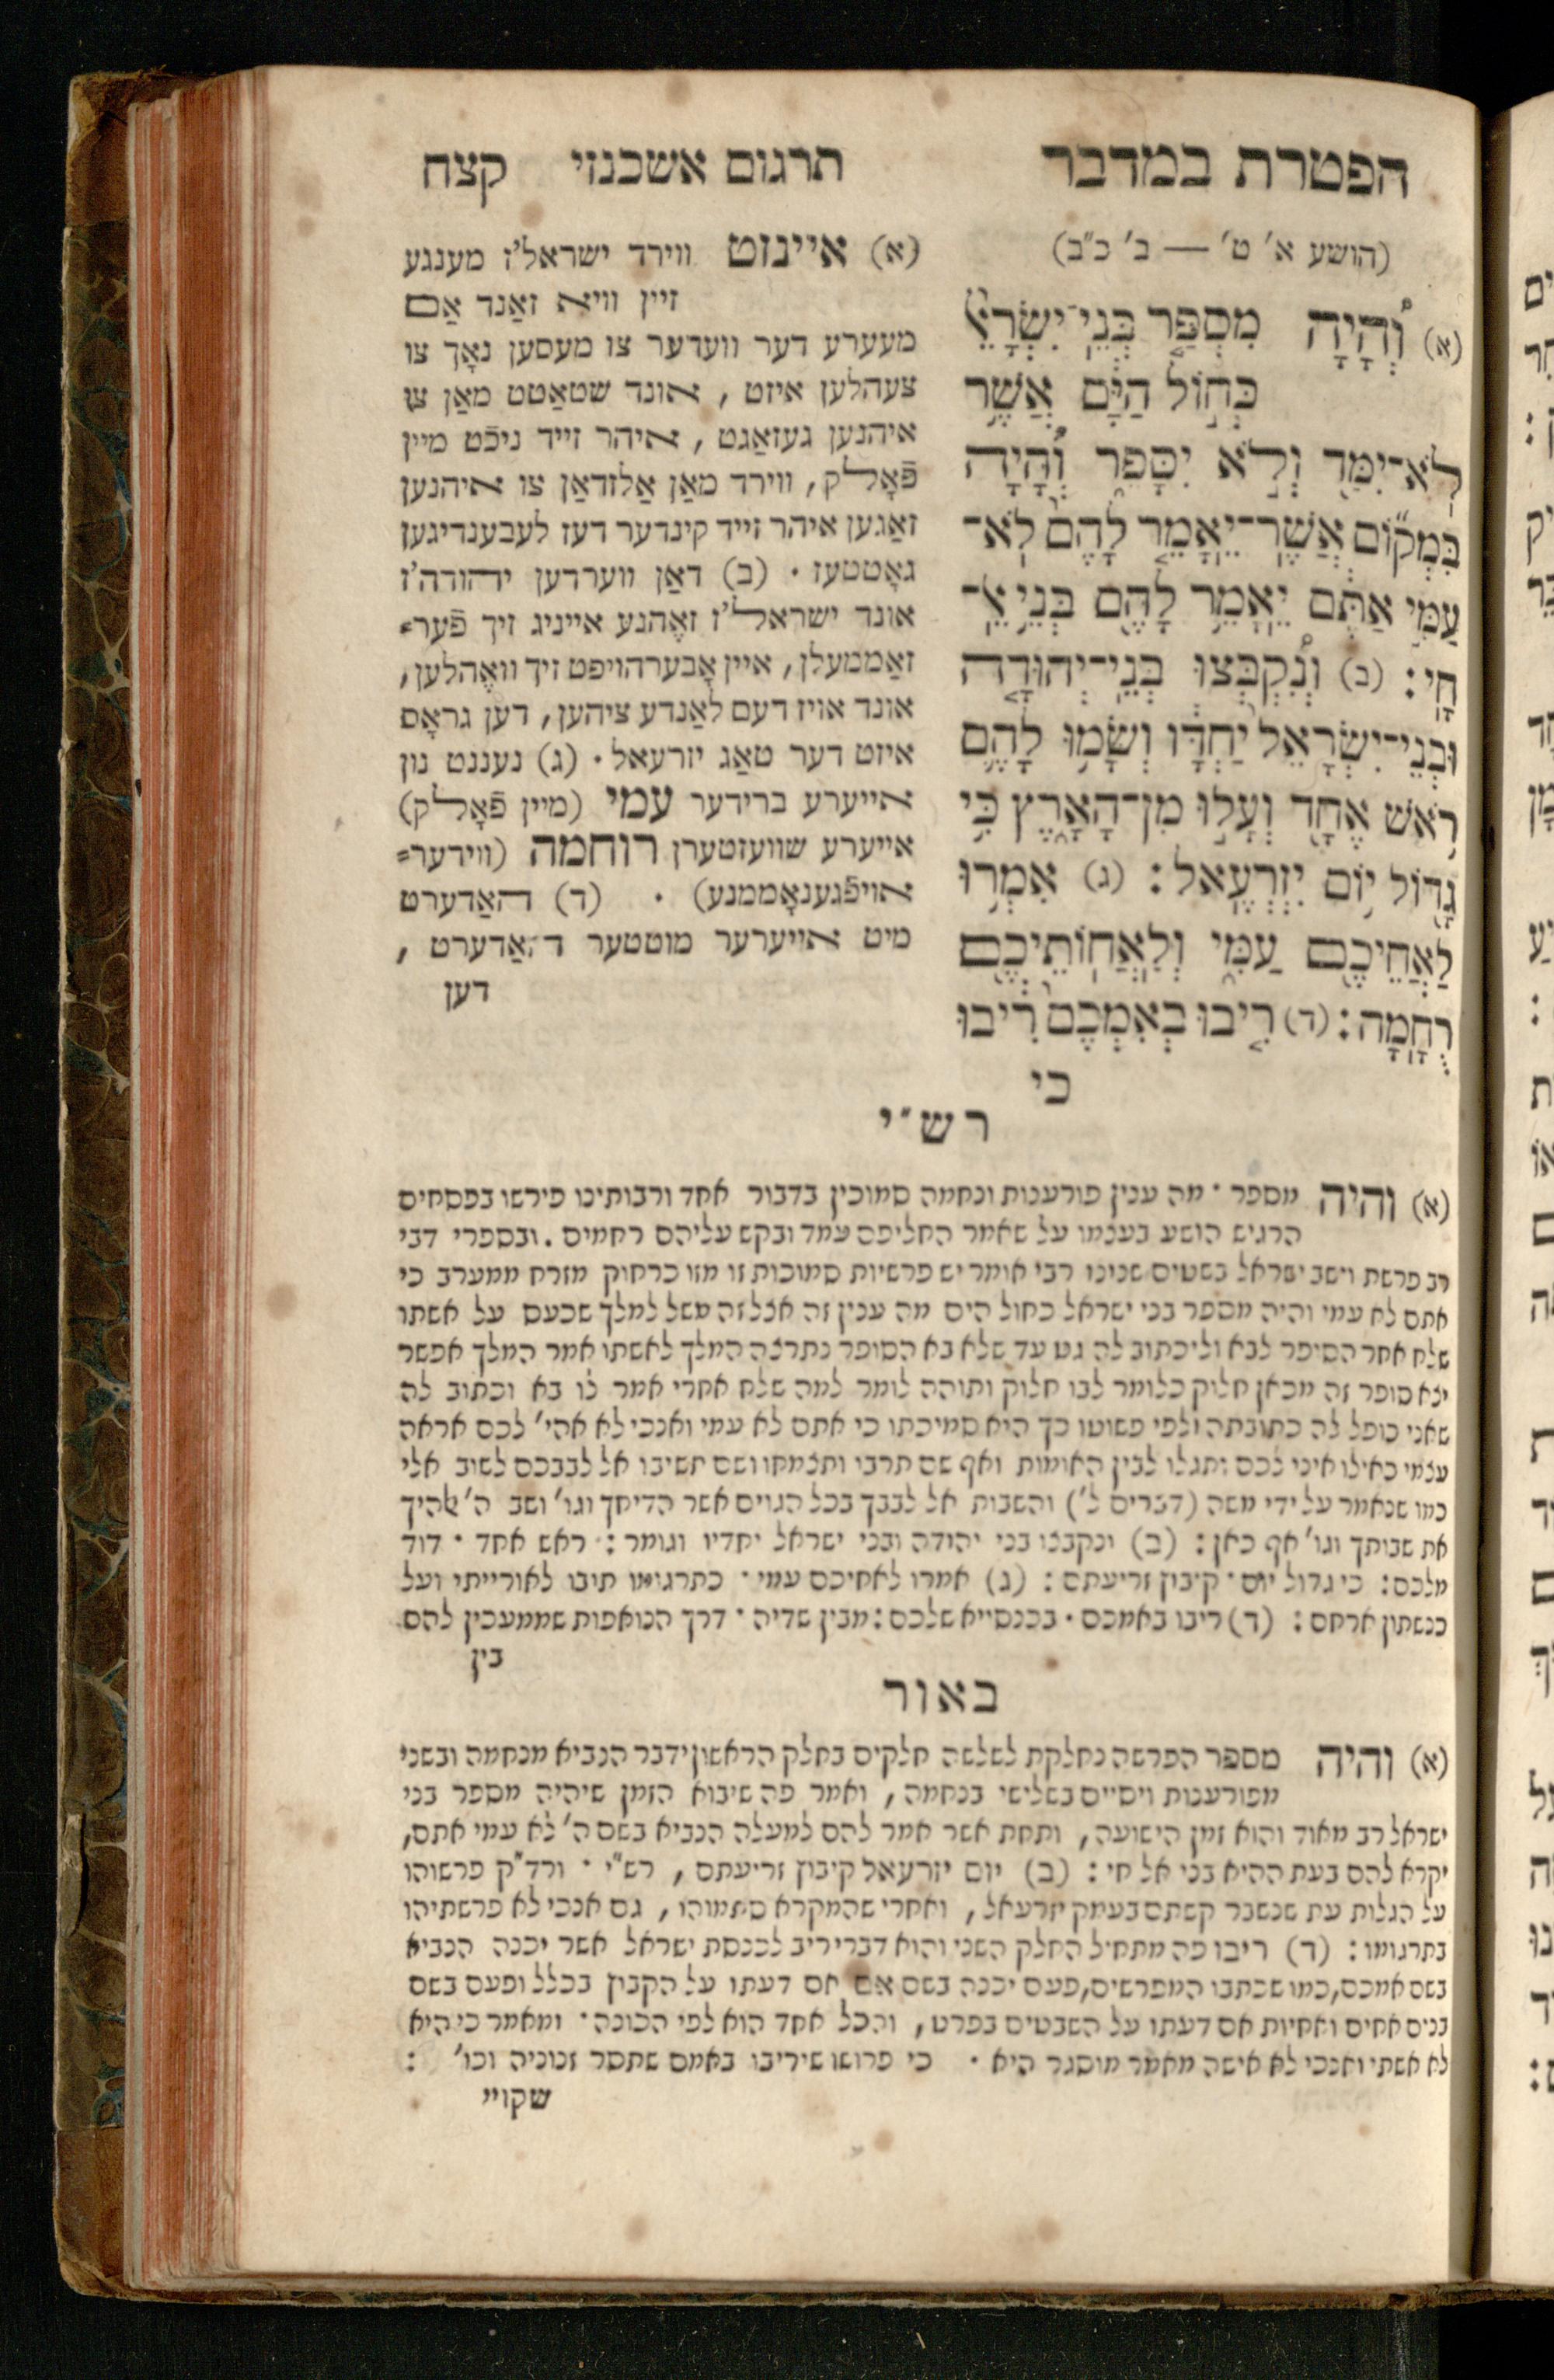 הפטרת במדבר
תרגום אשכנזי קצח
(הושע א׳ ט׳ — ב׳ כ״ב)
(א) וְהָיָה מִסְפַּר בְּנֵי־יִשְׂרָאֵל
כְּחוֹל הַיָּם אֲשֶׁר
לֹא־יִמַּד וְלֹא יִסָּפֵר וְהָיָה
בִּמְקוֹם אֲשֶׁר־יֵאָמֵר לָהֶם לֹא־
עַמִּי אַתֶּם יֵאָמֵר לָהֶם בְּנֵי אֵל־
חָי: (ב) וְנִקְבְּצוּ בְּנֵי־יְהוּדָה
וּבְנֵי־יִשְׂרָאֵל יַחְדָּו וְשָׂמוּ לָהֶם
רֹאשׁ אֶחָד וְעָלוּ מִן־הָאָרֶץ כִּי
גָדוֹל יוֹם יִזְרְעֶאל: (ג) אִמְרוּ
לַאֲחֵיכֶם עַמִּי וְלַאֲחוֹתֵיכֶם
רֻחָמָה: (ד) רִיבוּ בְאִמְּכֶם רִיבוּ
כי
(א) איינזט ווירד ישראל׳ז מענגע
זיין וויא זאַנד אַם
מעערע דער וועדער צו מעסען נאָך צו
צעהלען איזט, אונד שטאַטט מאַן צו
איהנען געזאַגט, איהר זייד ניכֿט מיין
פֿאָלק, ווירד מאַן אַלזדאַן צו איהנען
זאַגען איהר זייד קינדער דעז לעבענדיגען
גאָטטעז. (ב) דאַן ווערדען יהודה׳ז
אונד ישראל׳ז זאֶהנע אייניג זיך פֿער⸗
זאַממעלן, איין אָבערהויפט זיך וואֶהלען,
אונד אויז דעם לאַנדע ציהען, דען גראָס
איזט דער טאַג יזרעאל. (ג) נעננט נון
אייערע ברידער עמי (מיין פֿאָלק)
אייערע שוועזטערן רוחמה (ווידער⸗
אויפֿגענאָממנע). (ד) האַדערט
מיט אייערער מוטטער האַדערט,
דען
רש״י
(א) והיה מספר. מה ענין פורענות ונחמה סמוכין בדבור אחד ורבותינו פירשו בפסחים
הרגיש הושע בעצמו על שאמר החליפם עמד ובקש עליהם רחמים. ובספרי דבי
רב פרשת וישב ישראל בשטים שנינו רבי אומר יש פרשיות סמוכות זו מזו כרחוק מזרח ממערב כי
אתם לא עמי והיה מספר בני ישראל כחול הים מה ענין זה אצל זה משל למלך שכעס על אשתו
שלח אחר הסיפר לבא וליכתוב לה גט עד שלא בא הסופר נתרצה המלך לאשתו אמר המלך אפשר
יצא סופר זה מכאן חלוק כלומר לבו חלוק ותוהה לומר למה שלח אחרי אמר לו בא וכתוב לה
שאני כופל לה כתובתה ולפי פשוטו כך היא סמיכתו כי אתם לא עמי ואנכי לא אהי׳ לכם אראה
עצמי כאילו איני לכם ותגלו לבין האומות ואף שם תרבי ותצמחו ושם תשיבו אל לבבכם לשוב אלי
כמו שנאמר על ידי משה (דברים ל׳) והשבות אל לבבך בכל הגוים אשר הדיחך וגו׳ ושב ה׳ אלהיך
את שבותך וגו׳ אף כאן: (ב) ונקבצו בני יהודה ובני ישראל יחדיו וגומר: ראש אחד. דוד
מלכם: כי גדול יום. קיבוץ זריעתם: (ג) אמרו לאחיכם עמי. כתרגומו תובו לאורייתי ועל
כנשתון ארחם: (ד) ריבו באמכם. בכנסייא שלכם: מבין שדיה. דרך הנואפות שממעכין להם
בין
באור
(א) והיה מספר הפרשה נחלקת לשלשה חלקים בחלק הראשון ידבר הנביא מנחמה ובשני
מפורענות ויסיים בשלישי בנחמה, ואמר פה שיבוא הזמן שיהיה מספר בני
ישראל רב מאוד והוא זמן הישועה, ותחת אשר אמר להם למעלה הנביא בשם ה׳ לא עמי אתם,
יקרא להם בעת ההיא בני אל חי: (ב) יום יזרעאל קיבוץ זריעתם, רש״י. ורד״ק פרשוהו
על הגלות עת שנשבר קשתם בעמק יזרעאל, ואחרי שהמקרא סתמוהו, גם אנכי לא פרשתיהו
בתרגומו: (ד) ריבו פה מתחיל החלק השני והוא דברי ריב לכנסת ישראל אשר יכנה הנביא
בשם אמכם, כמו שכתבו המפרשים, פעם יכנה בשם אם אם דעתו על הקבוץ בכלל ופעם בשם
בנים אחים ואחיות אם דעתו על השבטים בפרט, והכל אחד הוא לפי הכונה. ומאמר כי היא
לא אשתי ואנכי לא אישה מאמר מוסגר היא. כי פרושו שיריבו באמם שתסר זנוניה וכו׳:
שקויי